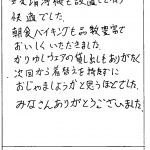 快適でした。
朝食バイキングも品数豊富で
おいしくいただきました。
かりゆしウェアの貸し出しもありがたく
次回から着替えを持たずに
おじゃましようかと思うほどでした。
みなさんありがとうございました。